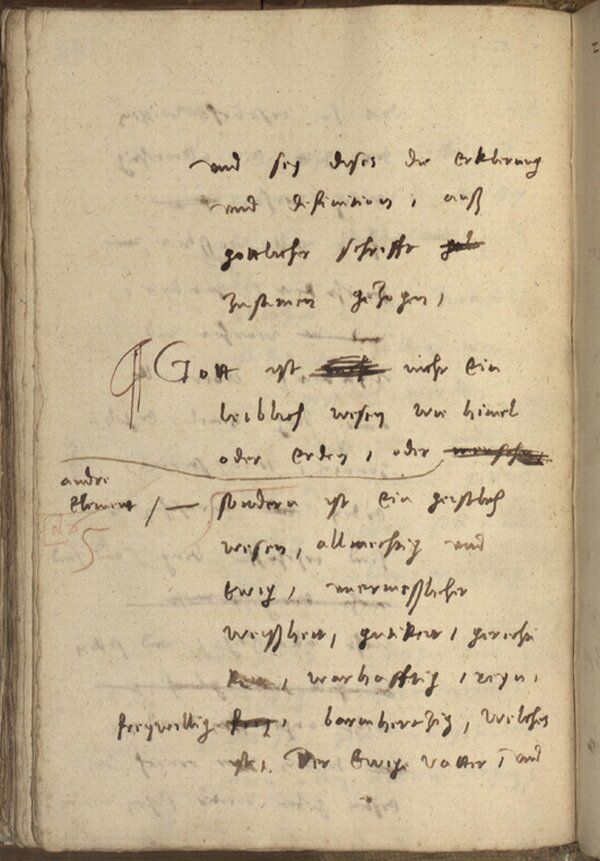 und sey dises die erklerung
und definition, auß
gottlicher schrifft
zusamen gezogen,
Gott ist nicht ein
leiblich wesen wie himel
oder erden, oder
andre
Element / — sondern ist ein geistlich
wesen, allmechtig und
Ewig, unermeßlicher
Weißheit, gutikeit, gerechti
keit, warhafftig, reyn,
freywillig, barmhertzig, welches
ist, Der Ewige vatter, und